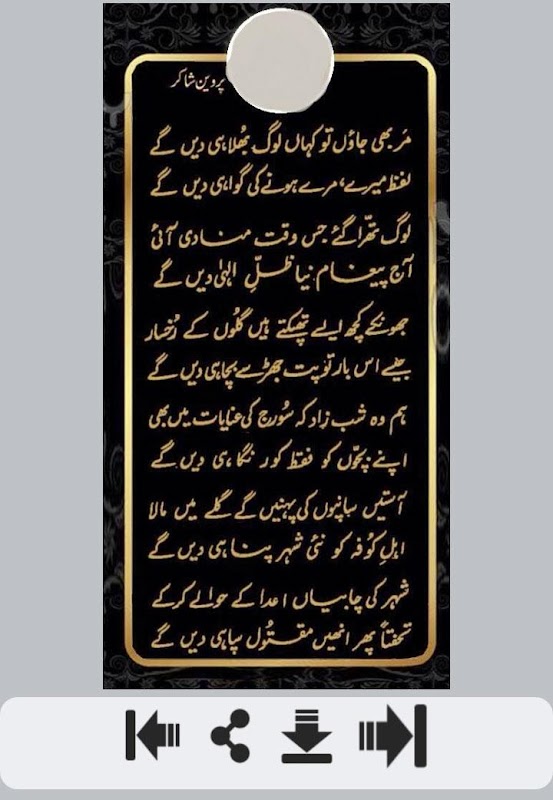 پروین شاکر
مَر بھی جاؤں تو کہاں لوگ بھُلا ہی دیں گے
لفظ میرے، مرے ہونے کی گواہی دیں گے
لوگ تھرّا گئے جس وقت منادی آئی
آج پیغام نیا ظلِّ الٰہی دیں گے
جھونکے کچھ ایسے تھپکتے ہیں گلُوں کے رُخسار
جیسے اس بار تو پت جھڑ سے بچا ہی دیں گے
ہم وہ شب زاد کہ سُورج کی عنایات میں بھی
اپنے بچّوں کو فقط کور نگاہی دیں گے
آستیں سانپوں کی پہنیں گے گلے میں مالا
اہلِ کوُفہ کو نئی شہر پناہی دیں گے
شہر کی چابیاں اعدا کے حوالے کرکے
تحفتاً پھر انھیں مقتوُل سپاہی دیں گے